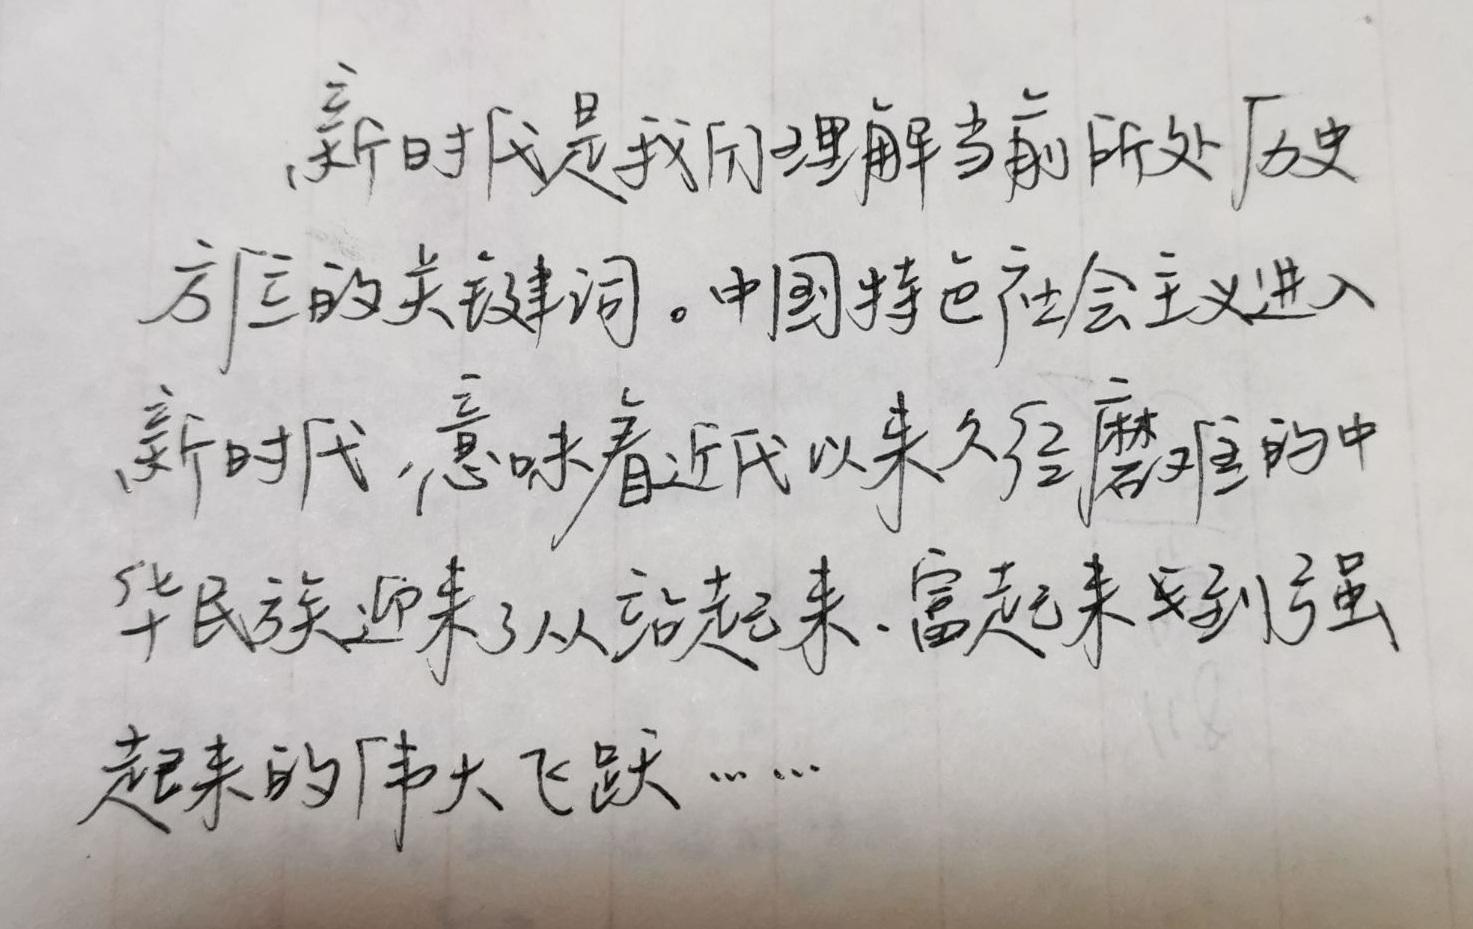 新时代是我们理解当前所处历史
方位的关键词。中国特色社会主义进入
新时代，意味着近代以来久经磨难的中
华民族迎来了从站起来、富起来到强
起来的伟大飞跃……